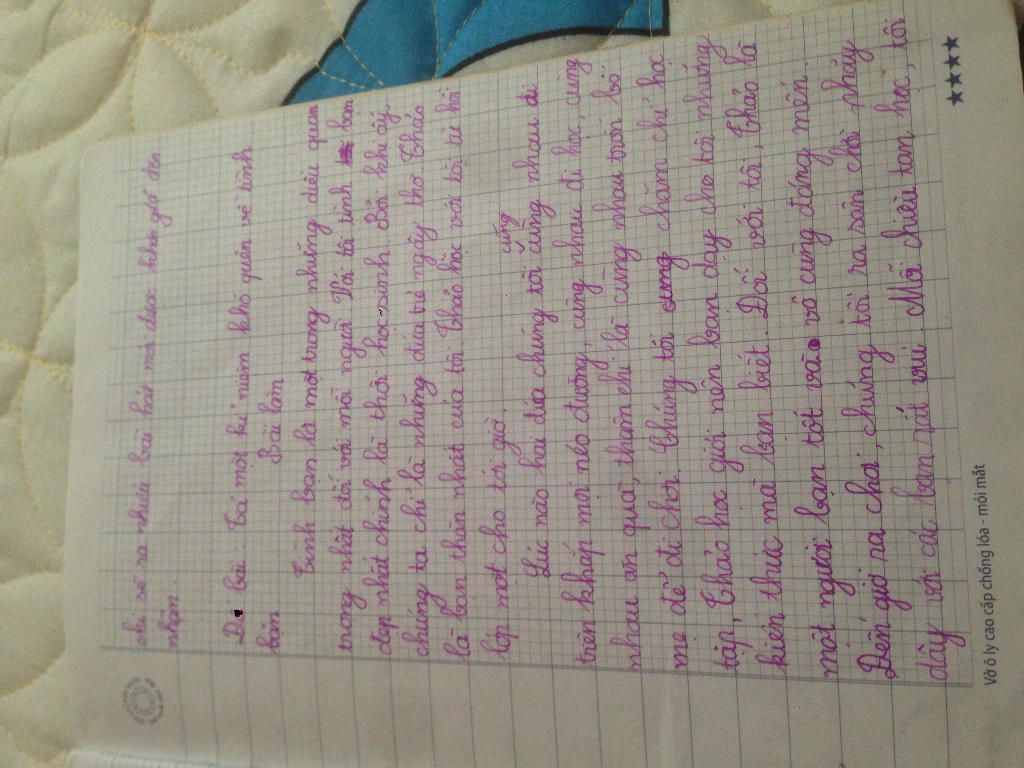 chi sẽ ra nhiều bài hát mà được khán giả đón
nhận.
Đề bài: Tả một kỉ niệm khó quên về tình
bạn
Bài làm
Tình bạn là một trong những điều quan
trong nhất đối với mỗi người. Với tôi tình bạn
đẹp nhất chính là thời học sinh. Bởi khi ấy,
chúng ta chỉ là những đứa trẻ ngây thơ. Thảo
là bạn thân nhất của tôi. Thảo học với tôi từ hồi
lớp một cho tới giờ.
Lúc nào hai đứa chúng tôi cũng cùng nhau đi
trên khắp mọi nẻo đường, cùng nhau đi học, cùng
nhau ăn quà, thậm chí là cùng nhau trốn bố
mẹ để đi chơi. Chúng tôi cùng chăm chỉ học
tập, Thảo học giỏi nên bạn dạy cho tôi những
kiến thức mà bạn biết. Đối với tôi, Thảo là
một người bạn tốt và vô cùng đáng mến.
Đến giờ ra chơi, chúng tôi ra sân chơi nhảy
dây với các bạn rất vui. Mỗi chiều tan học, tôi
Vở ô ly cao cấp chống lóa - mỏi mắt